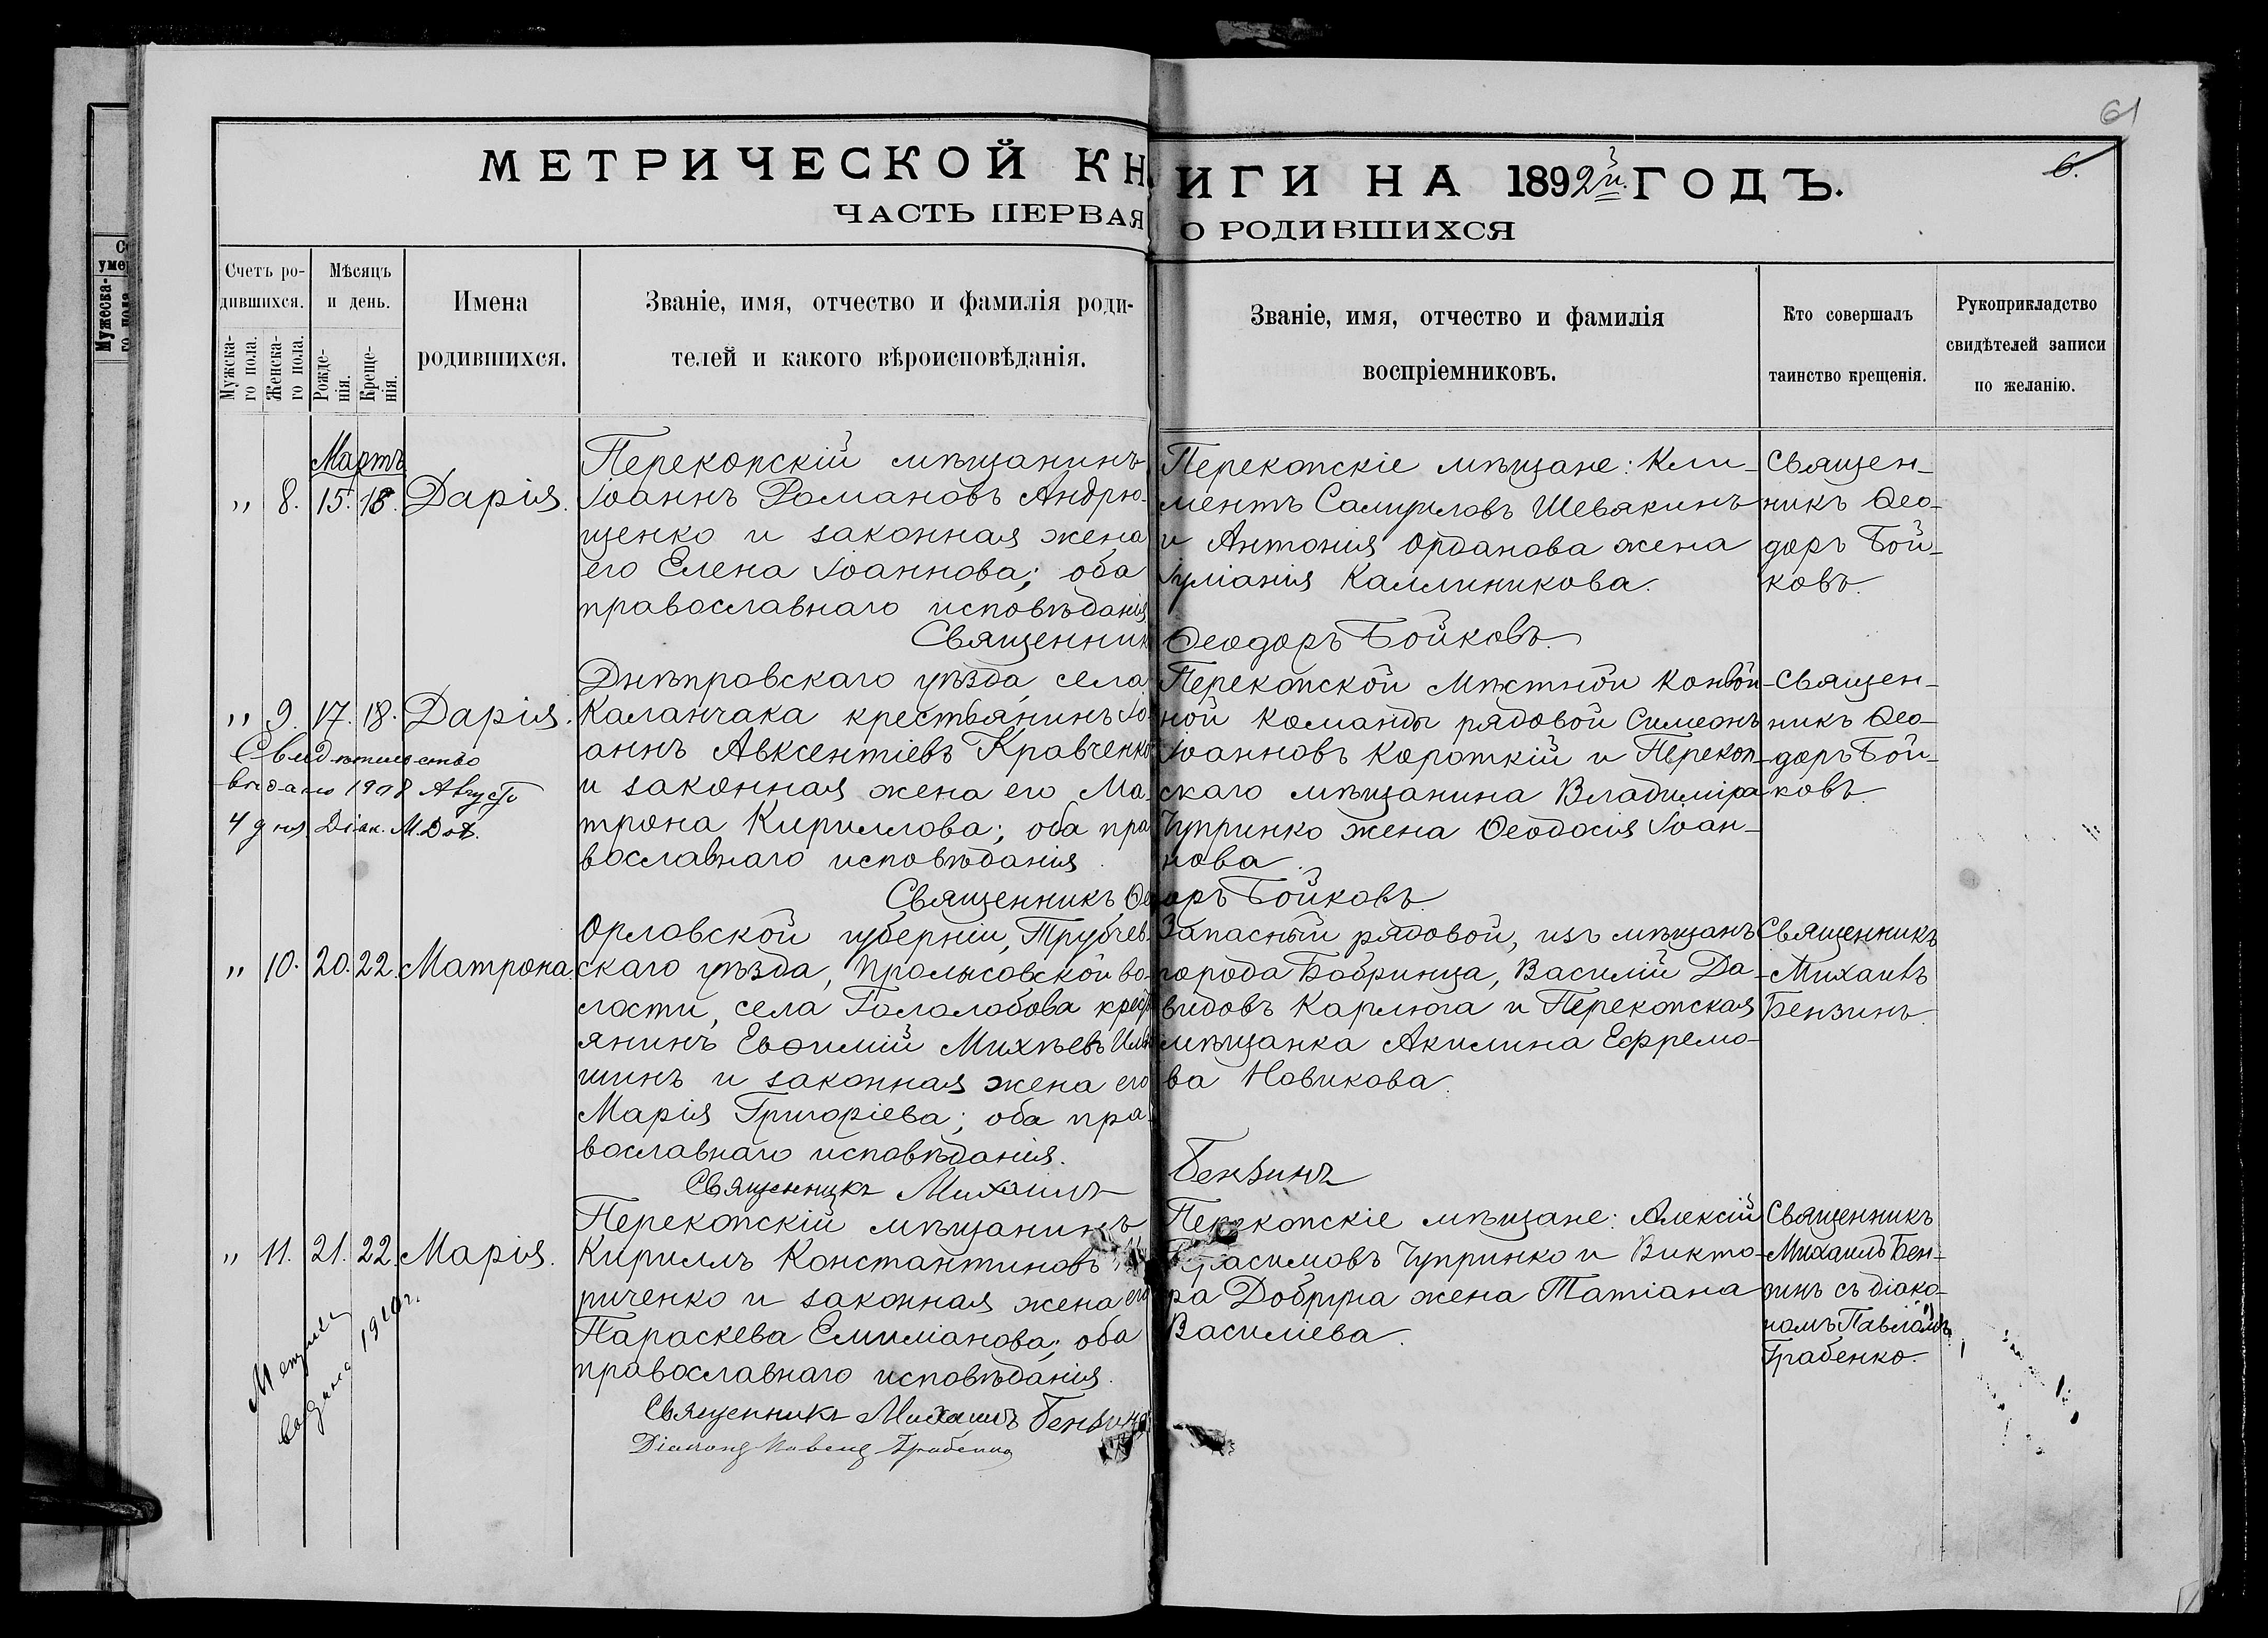 61
6.
МЕТРИЧЕСКОЙ КНИГИ НА 1892й ГОДЪ.
ЧАСТЬ ПЕРВАЯ О РОДИВШИХСЯ
Счетъ ро-
дившихся.
Мужска-
го пола.
Женска-
го пола.
Мѣсяцъ
и день.
Рожде-
нія.
Креще-
нія.
Имена
родившихся.
Званіе, имя, отчество и фамилія роди-
телей и какого вѣроисповѣданія.
Званіе, имя, отчество и фамилія
воспріемниковъ.
Кто совершалъ
таинство крещенія.
Рукоприкладство
свидѣтелей записи
по желанію.
Мартъ
„ 8. 15. 18. Дарія.
Перекопскій мѣщанинъ
Іоаннъ Романовъ Андрю-
щенко и законная жена
его Елена Іоаннова; оба
православнаго исповѣданія
Перекопскіе мѣщане: Кли-
ментъ Самуиловъ Шевякинъ
и Антонія Орданова жена
Іуліанія Каллиникова.
Священ-
никъ Ѳео-
доръ Бой-
ковъ.
Священник Ѳеодоръ Бойковъ.
„ 9. 17. 18. Дарія.
Свидѣтельство
выдано 1908 Августа
4 дня Діак.
Днѣпровскаго уѣзда села
Каланчака крестьянинъ Іо-
аннъ Авксентіевъ Кравченко
и законная жена его Ма-
трона Кириллова; оба пра
вославнаго исповѣданія.
Перекопской Мѣстной конвой-
ной команды рядовой Симеонъ
Іоанновъ Короткій и Перекоп-
скаго мѣщанина Владиміра
Чупринко жена Ѳеодосія Іоан-
нова.
Священ-
никъ Ѳео-
доръ Бой-
ковъ.
Священникъ Ѳеодоръ Бойковъ.
„ 10. 20. 22. Матрона.
Орловской губерніи, Трубчев-
скаго уѣзда, Пролысовской во-
лости, села Гололобова крест
янинъ Евѳимій Михѣевъ
шинъ и законная жена его
Марія Григоріева; оба пра-
вославнаго исповѣданія.
Запасный рядовой, изъ мѣщанъ
города Бобринца, Василій Да-
видовъ Карлюга и Перекопская
мѣщанка Акилина Ефремо-
ва Новикова.
Священникъ
Михаилъ
Бензинъ.
Священникъ Михаилъ Бензинъ
„ 11. 21. 22. Марія.
Метрика
выдана 1910 г.
Перекопскій мѣщанинъ
Кириллъ Константиновъ
риченко и законная жена его
Параскева Емиліанова; оба
православнаго исповѣданія.
Перекопскіе мѣщане: Алексій
Герасимовъ Чупринко и Викто-
ра Добруна жена Татіана
Василіева.
Священникъ
Михаилъ Бен-
зинъ съ діако-
номъ Павломъ
Грабенко.
Священникъ Михаилъ Бензинъ
Діаконъ Павелъ Грабенко